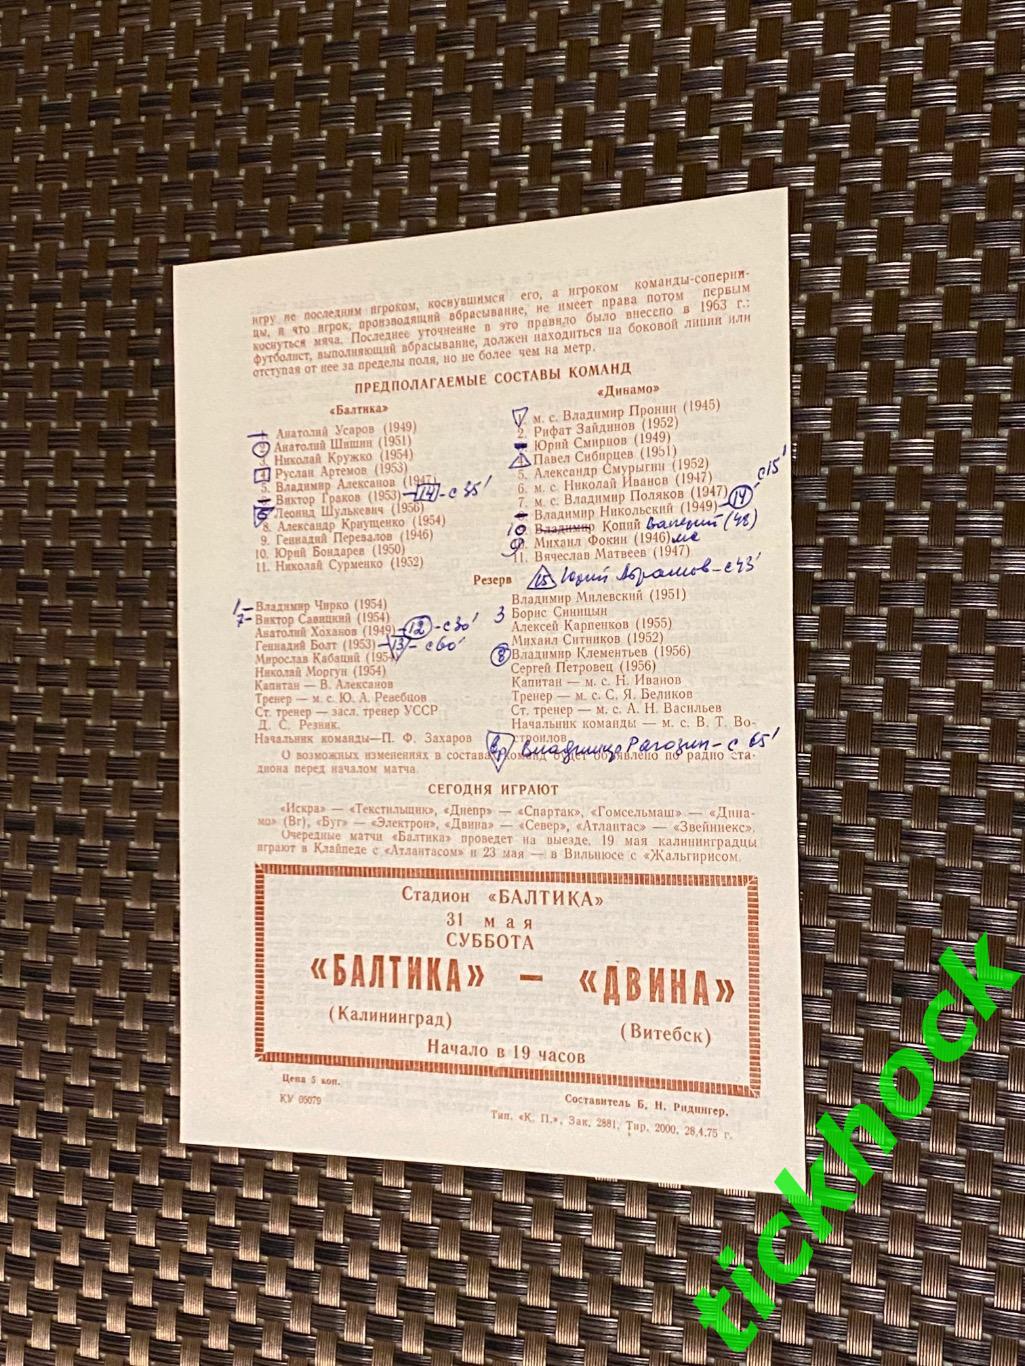 игру не последним игроком, коснувшимся его, а игроком команды-соперни-
цы, и что игрок, производящий вбрасывание, не имеет права потом первым
коснуться мяча. Последнее уточнение в это правило было внесено в 1963 г.:
футболист, выполняющий вбрасывание, должен находиться на боковой линии или
отступая от нее за пределы поля, но не более чем на метр.
ПРЕДПОЛАГАЕМЫЕ СОСТАВЫ КОМАНД
«Балтика»
Анатолий Усаров (1949)
Анатолий Шишин (1951)
3. Николай Кружко (1954)
Руслан Артемов (1953)
5. Владимир Алексанов (1947)
Виктор Граков (1953) 14 - с 35'
6 Леонид Шулькевич (1956)
8. Александр Криущенко (1954)
9. Геннадий Перевалов (1946)
10. Юрий Бондарев (1950)
11. Николай Сурменко (1952)
«Динамо»
1 м. с. Владимир Пронин (1945)
2. Рифат Зайдинов (1952)
Юрий Смирнов (1949)
4. Павел Сибирцев (1951)
5. Александр Смурыгин (1952)
6. м. с. Николай Иванов (1947)
7. м. с. Владимир Поляков (1947) с 15'
Владимир Никольский (1949) - 14
10 Владимир Копий Валерий (48)
9 Михаил Фокин (1946) мс
11. Вячеслав Матвеев (1947)
Резерв
15 Юрий Абрамов - с 43'
1 - Владимир Чирко (1954)
7 - Виктор Савицкий (1954)
Анатолий Хоханов (1949) - 12 - с 30'
Геннадий Болт (1953) - 13 - с 60'
Мирослав Кабаций (1954)
Николай Моргун (1954)
Капитан — В. Алексанов
Тренер — м. с. Ю. А. Ревебцов
Ст. тренер — засл. тренер УССР
Д. С. Резник.
Начальник команды—П. Ф. Захаров
Владимир Милевский (1951)
3 Борис Синицын
Алексей Карпенков (1955)
Михаил Ситников (1952)
8 Владимир Клементьев (1956)
Сергей Петровец (1956)
Капитан — м. с. Н. Иванов
Тренер — м. с. С. Я. Беликов
Ст. тренер — м. с. А. Н. Васильев
Начальник команды — м. с. В. Т. Во-
строилов.
вр Владимир Рагозин - с 65'
О возможных изменениях в составах команд будет объявлено по радио ста-
диона перед началом матча.
СЕГОДНЯ ИГРАЮТ
«Искра» — «Текстильщик», «Днепр» — «Спартак», «Гомсельмаш» — «Дина-
мо» (Вг), «Буг» — «Электрон», «Двина» — «Север», «Атлантас» — «Звейниекс».
Очередные матчи «Балтика» проведет на выезде. 19 мая калининградцы
играют в Клайпеде с «Атлантасом» и 23 мая — в Вильнюсе с «Жальгирисом.
Стадион «БАЛТИКА»
31 мая
СУББОТА
«БАЛТИКА» — «ДВИНА»
(Калининград) (Витебск)
Начало в 19 часов
Цена 5 коп.
КУ 05079
Составитель Б. Н. Ридингер.
Тип. «К. П.», Зак. 2881, Тир. 2000, 28.4.75 г.
tickhock